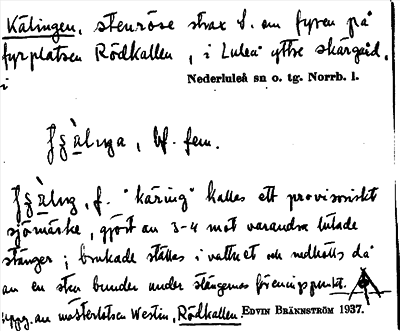 Kälingen, stenröse strax S. om fyren på
fyrplatsen Rödkallen, i Luleå yttre skärgård.
i
Nederluleå sn o. tg. Norrb. l.
bf. fem.
f. "käring" kallas ett provisoriskt
sjömärke, gjort av 3-4 mot varandra lutade
stänger; brukade ställas i vattnet och nedhölls då
av en sten bunden under stängernas föreningspunkt.
uppg. av mästerlotsen Westin, Rödkallen EDVIN BRÄNNSTRÖM 1937.